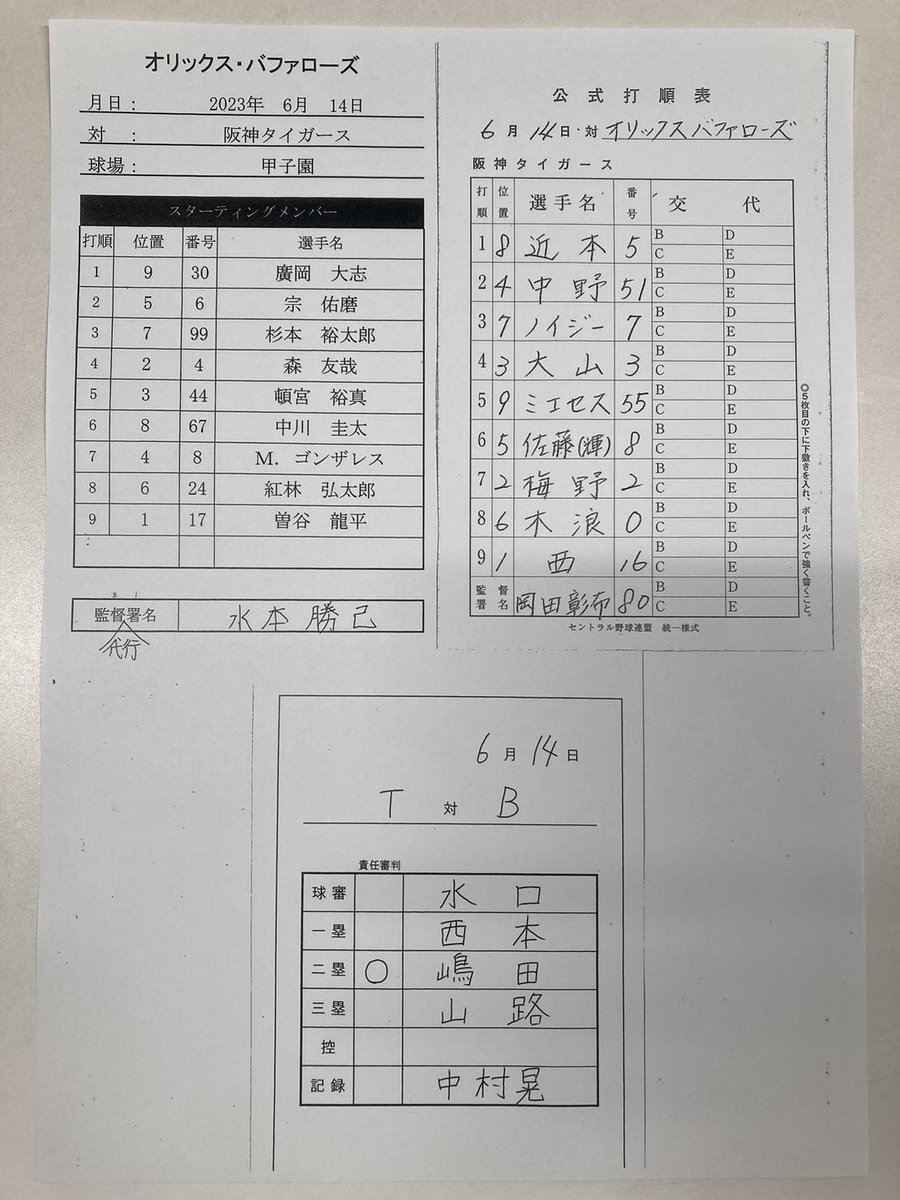 オリックス・バファローズ
月日： 2023年 6月 14日
対 ： 阪神タイガース
球場： 甲子園
スターティングメンバー
打順 位置 番号 選手名
1 9 30 廣岡 大志
2 5 6 宗 佑磨
3 7 99 杉本 裕太郎
4 2 4 森 友哉
5 3 44 頓宮 裕真
6 8 67 中川 圭太
7 4 8 M．ゴンザレス
8 6 24 紅林 弘太郎
9 1 17 曽谷 龍平
監督署名 水本勝己
代行
公式打順表
6月14日・対 オリックスバファローズ
阪神タイガース
打順 位置 選手名 番号 交代
1 8 近本 5 B D
C E
2 4 中野 51 B D
C E
3 7 ノイジー 7 B D
C E
4 3 大山 3 B D
C E
5 9 ミエセス 55 B D
C E
6 5 佐藤(輝) 8 B D
C E
7 2 梅野 2 B D
C E
8 6 木浪 0 B D
C E
9 1 西 16 B D
C E
監督署名 岡田彰布 80 B D
C E
セントラル野球連盟 統一様式
◎5枚目の下に下敷きを入れ、ボールペンで強く書くこと。
6月14日
T 対 B
責任審判
球審 水口
一塁 西本
二塁 ○ 嶋田
三塁 山路
控
記録 中村晃